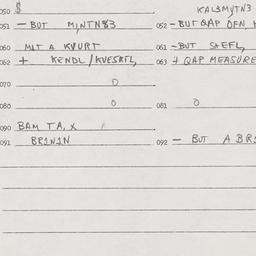 050 $
KAL3MYTN3
051 — BUT MINTN83
052 — BUT QAP OEN,
060 MLT A KVURT
061 — BUT SHEFL,
062 + KENDL/KVESRTL,
063 + QAP MEASURE
070 0
080 0
081 0
090 BAM TA, X
091 BR1N1N
092 — BUT A BR